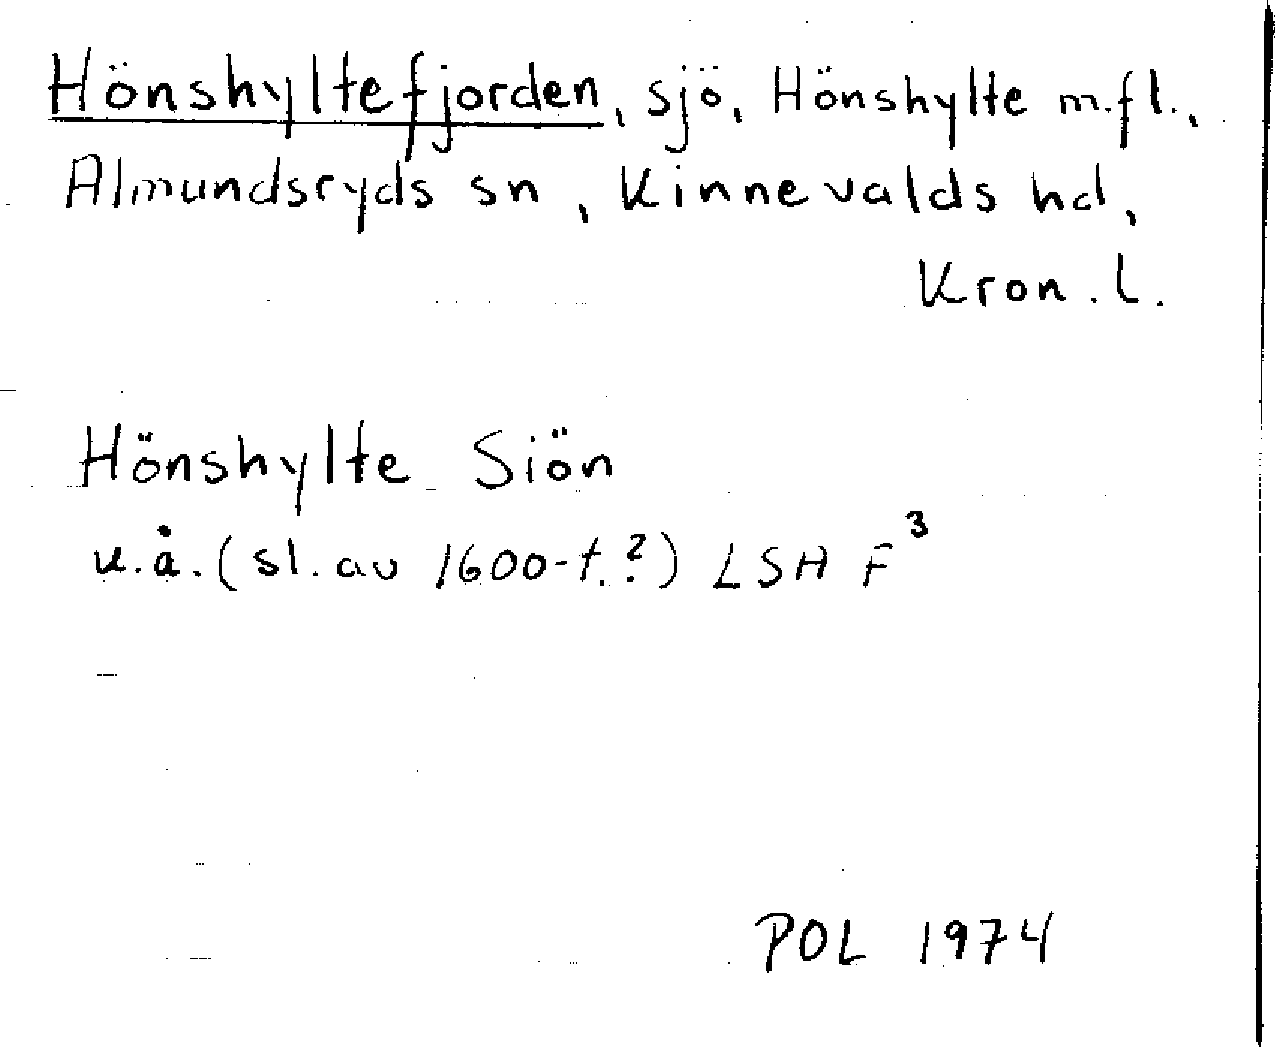 Hönshyltefjorden, sjö, Hönshylte m.fl.,
Almundsryds sn, Kinnevalds hd,
Kron. l.
Hönshylte Siön
u.å. (sl. av 1600-t.?) LSA F³
POL 1974